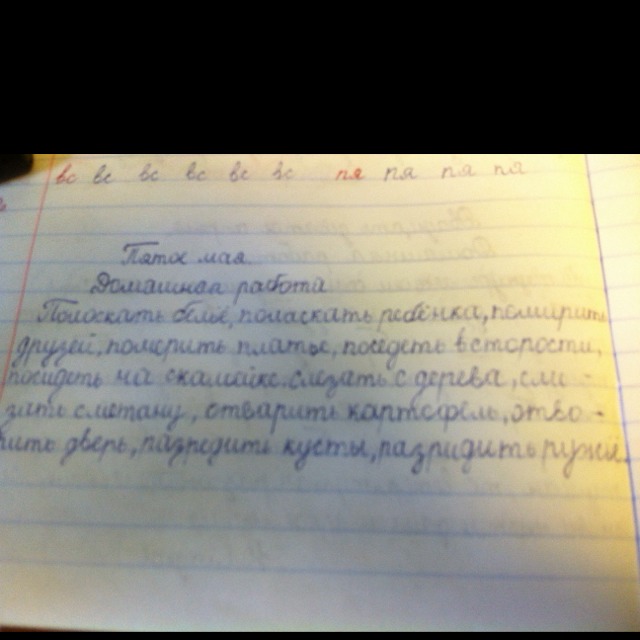 вс вс вс вс вс вс пя пя пя пя
Пятое мая.
Домашняя работа
Полоскать бельё, поласкать ребёнка, помирить
друзей, померить платье, поседеть в старости,
посидеть на скамейке. слезать с дерева, сли-
зать сметану, отварить картофель, отво-
рить дверь, разредить кусты, разридить ружьё.